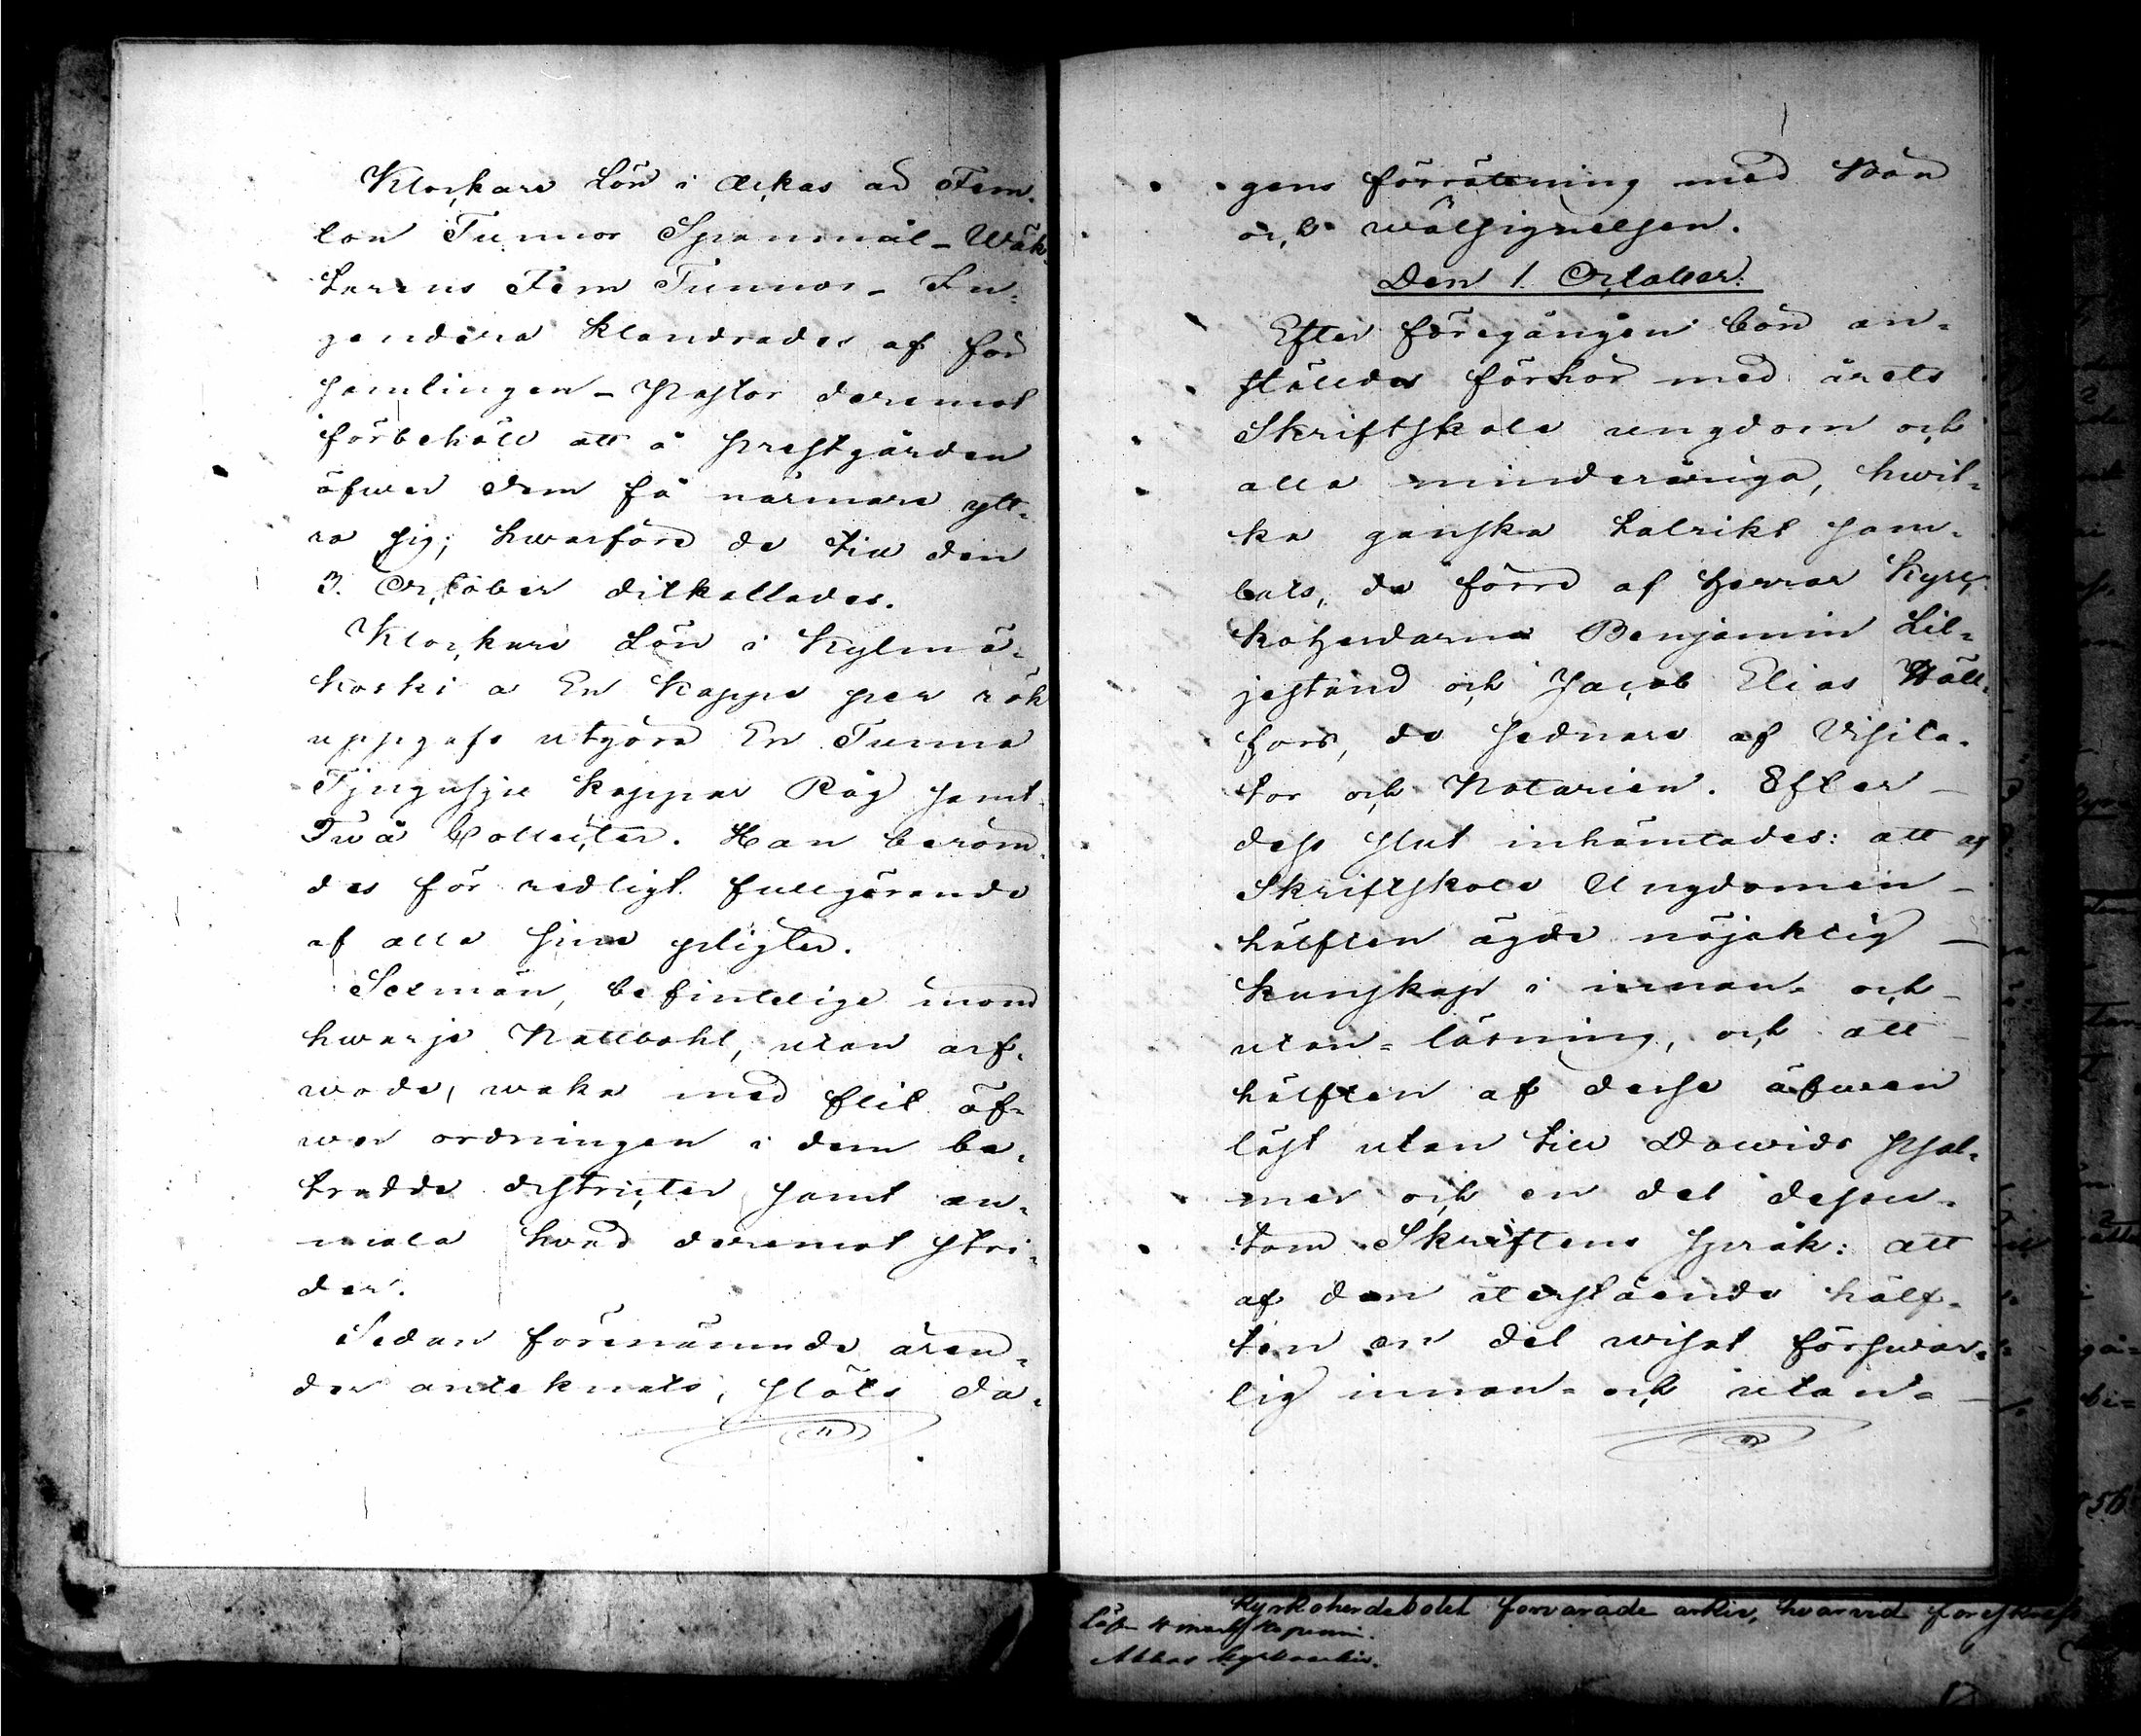 Klockare Lön i Ackas ad Fem-
ton Tunnor Spannmål - Wäk-
tarens Fem Tunnor - In-
gendera klandrades af för
samlingen - Pastor deremot
förbehöll att å prestgården
öfwer dem få närmare ytt-
ra sig; hwarföre de till den
3. October ditkallades.
Klockare Lön i Kylmä-
koski a En Kappe per rök
uppgafs utgöra En Tunna
Tjugusju kappar Råg samt
Två Collecter. Han beröm-
des för redligt fullgörande
af alla sina pligter.
Sexmän, befintelige inom
hwarje Nattbohl, utan arf-
wode, waka med flit öf-
wer ordningen i dem be-
trodde districter samt an-
mäla hvad deremot stri-
der.
Sedan förenämnde ären-
der antecknats, slöts da-
gens förrättning med Bön
och wälsignelsen.
Den 1 October.
Efter föregången bön an-
ställdes förhör med årets
Skriftskole ungdom och
alla minderåriga, hwil-
ka ganska talrikt sam-
lats, de förre af Herrar Kyrc-
koherdarne Benjamin Lil-
jestrand och Jacob Elias Häll-
fors, de sednare af Visita-
tor och Notarien. Efter -
dess slut inhämtades: att af
Skriftskole Ungdomen -
hälften ägde nöjaktig -
kunskap i innan- och -
utan-läsning, och att -
hälften af desse äfwen
läst utan till Dawids psal-
mer och en del dessu-
tom Skriftens språk: att
af den återstående hälf-
ten en del wisat förswar-
lig innan- och utan- -
Kyrkoherdebolet förvarade arkiv, hvarvid foreskrefs
Akkas kyrkoarkiv.